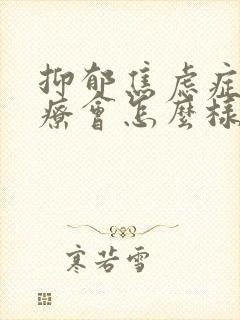 抑郁焦虑症
療會怎麼樣
寒若雪